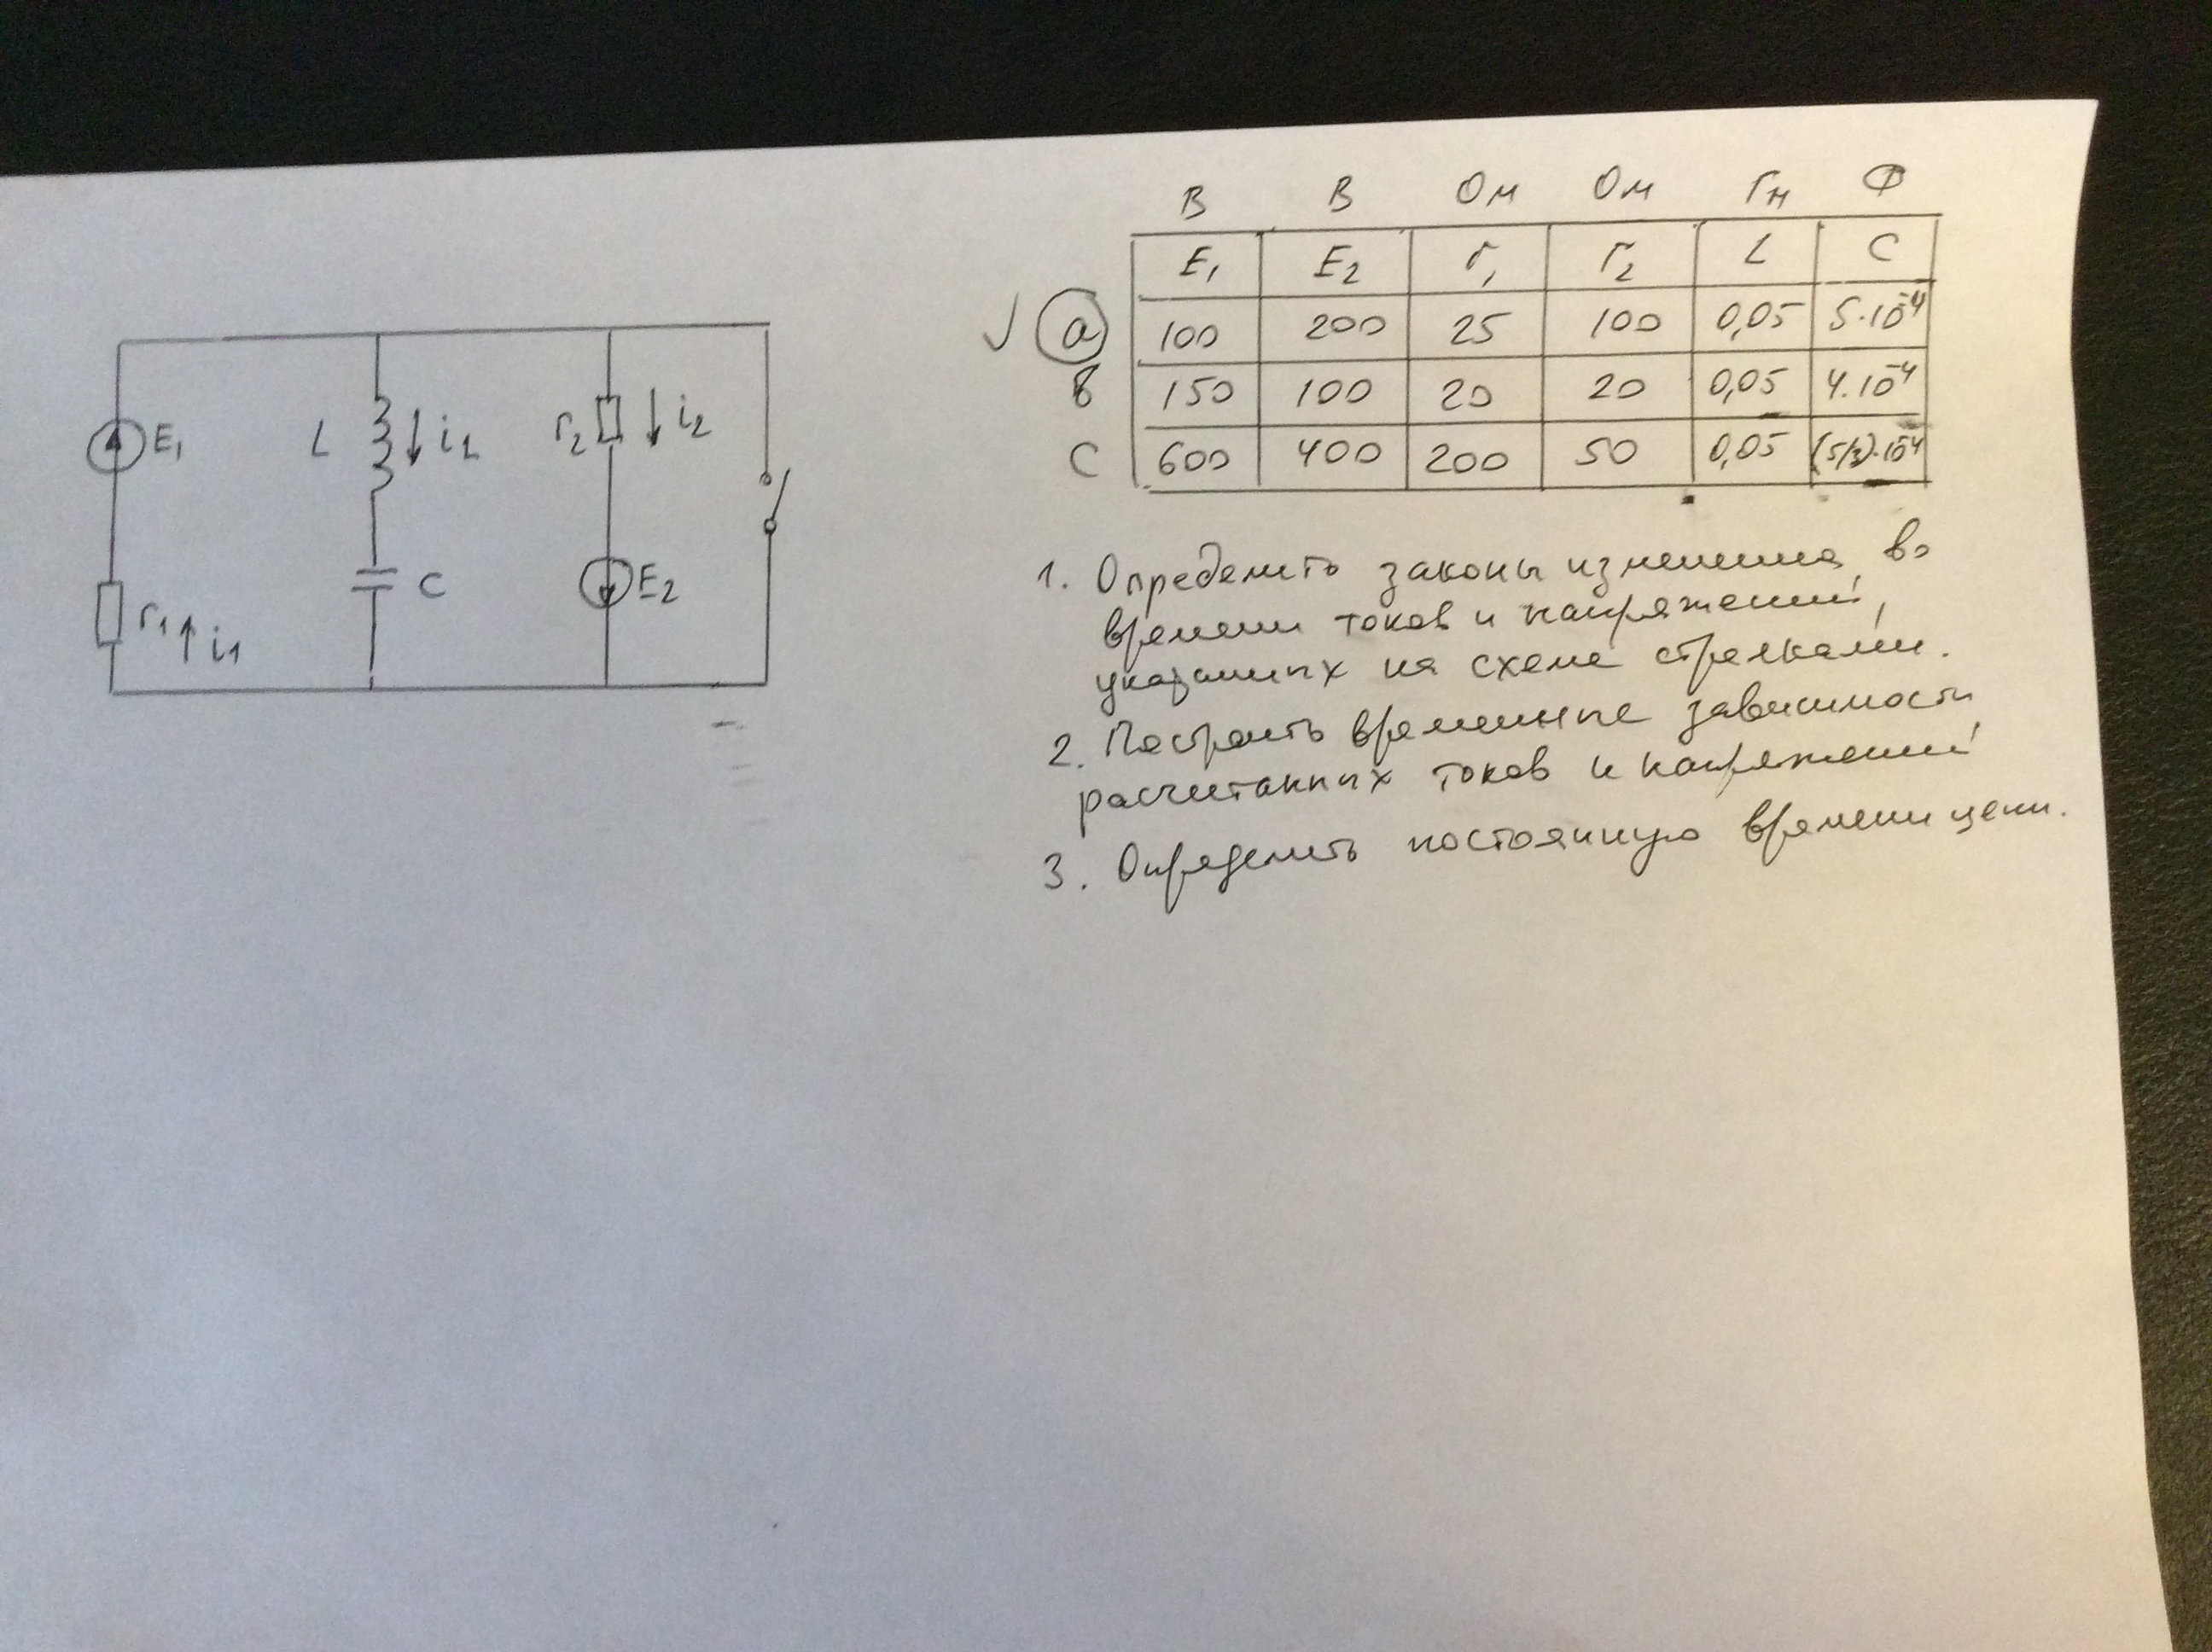 E₁
r₁ i₁
L i₂
C
r₂ i₂
E₂
В В Ом Ом Гн Ф
E₁ E₂ r₁ r₂ L C
a 100 200 25 100 0,05 5·10⁻⁴
в 150 100 20 20 0,05 4·10⁻⁴
c 600 400 200 50 0,05 (5/3)·10⁻⁴
1. Определить законы изменения во
времени токов и напряжений,
указанных на схеме стрелками.
2. Построить временные зависимости
расчитанных токов и напряжений
3. Определить постоянную времени цепи.